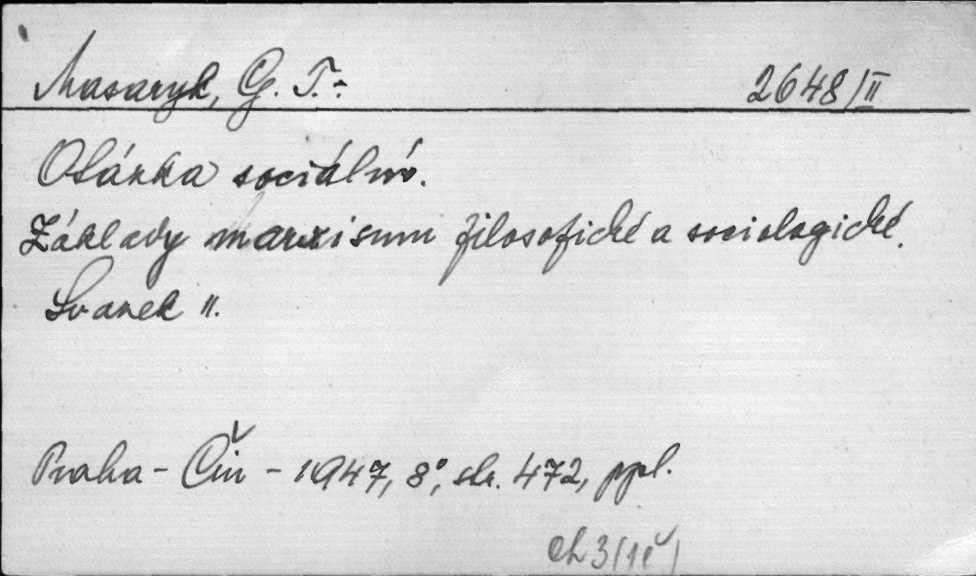 Masaryk, G. T.:
2648/II
Otázka sociální.
Základy marxismu filosofické a sociologické.
Svazek II.
Praha - Čin - 1947, 8°, str. 472, ppl.